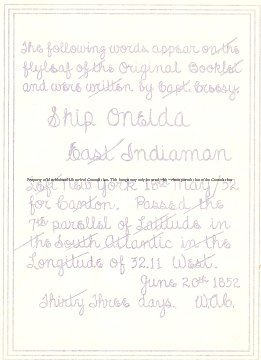 The following words appear on the
flyleaf of the Original Booklet
and were written by Capt. Creesy.
Ship Oneida
East Indiaman
Left New York 18th May /52
for Canton. Passed the
7th parallel of Latitude in
the South Atlantic in the
Longitude of 32.11 West.
June 20th 1852
Thirty Three days.